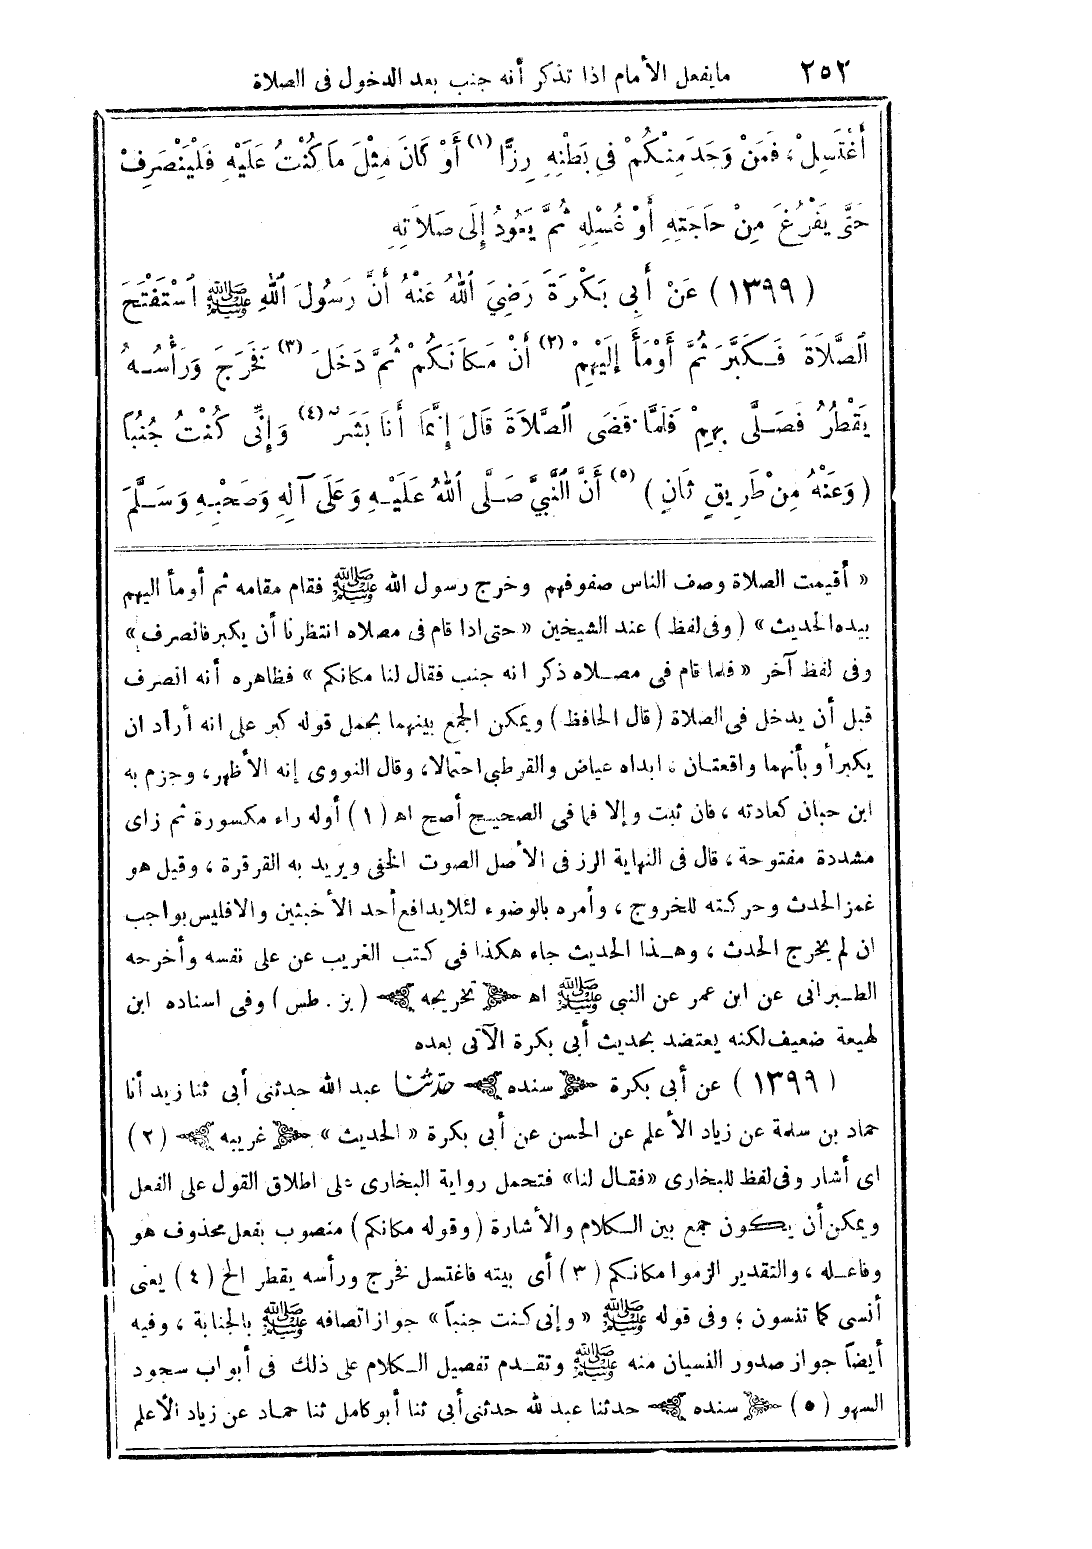 ٢٥٢ مايفعل الأمام اذا تذكر أنه جنب بعد الدخول فى الصلاة
أَغْتَسِلْ، فَمَنْ وَجَدَ مِنْكُمْ فِي بَطْنِهِ رِزًّا (١) أَوْ كَانَ مِثْلَ مَا كُنْتُ عَلَيْهِ فَلْيَنْصَرِفْ
حَتَّى يَفْرُغَ مِنْ حَاجَتِهِ أَوْ غُسْلِهِ ثُمَّ يَعُودُ إِلَى صَلَاتِهِ
(١٣٩٩) عَنْ أَبِي بَكْرَةَ رَضِيَ اللهُ عَنْهُ أَنَّ رَسُولَ اللهِ ﷺ اسْتَفْتَحَ
الصَّلَاةَ فَكَبَّرَ ثُمَّ أَوْمَأَ إِلَيْهِمْ (٢) أَنْ مَكَانَكُمْ ثُمَّ دَخَلَ (٣) فَخَرَجَ وَرَأْسُهُ
يَقْطُرُ فَصَلَّى بِهِمْ فَلَمَّا قَضَى الصَّلَاةَ قَالَ إِنَّمَا أَنَا بَشَرٌ (٤) وَإِنِّى كُنْتُ جُنُبًا
(وَعَنْهُ مِنْ طَرِيقٍ ثَانٍ) (٥) أَنَّ النَّبِيَّ صَلَّى اللهُ عَلَيْهِ وَعَلَى آلِهِ وَصَحْبِهِ وَسَلَّمَ
« أقيمت الصلاة وصف الناس صفوفهم وخرج رسول الله ﷺ فقام مقامه ثم أومأ اليهم
بيده الحديث » (وفى لفظ) عند الشيخين « حتى اذا قام فى مصلاه انتظرنا أن يكبر فانصرف »
وفى لفظ آخر « فلما قام فى مصلاه ذكر انه جنب فقال لنا مكانكم » فظاهره أنه انصرف
قبل أن يدخل فى الصلاة (قال الحافظ) ويمكن الجمع بينهما بحمل قوله كبر على انه أرأد ان
يكبر أو بأنهما واقعتان، ابداه عياض والقرطبى احتمالا، وقال النووى إنه الأظهر، وجزم به
ابن حبان كعادته، فان ثبت وإلا فما فى الصحيح أصح اه (١) أوله راء مكسورة ثم زاى
مشددة مفتوحة، قال فى النهاية الرز فى الأصل الصوت الخفى ويريد به القرقرة، وقيل هو
غمز الحدث وحركته للخروج، وأمره بالوضوء لئلا يدافع أحد الأخبثين والا فليس بواجب
ان لم يخرج الحدث، وهذا الحديث جاء هكذا فى كتب الغريب عن على نفسه وأخرحه
الطبرانى عن ابن عمر عن النبي ﷺ اه تخريجه (بز . طس) وفى اسناده ابن
لهيعة ضعيف لكنه يعتضد بحديث أبى بكرة الآتى بعده
(١٣٩٩) عن أبى بكرة سنده حدثنا عبد الله حدثنى أبى ثنا زيد أنا
حماد بن سلمة عن زياد الأعلم عن الحسن عن أبى بكرة « الحديث » غريبه (٢)
اى أشار وفى لفظ للبخارى «فقال لنا» فتحمل رواية البخارى على اطلاق القول على الفعل
ويمكن أن يكون جمع بين الكلام والأشارة (وقوله مكانكم) منصوب بفعل محذوف هو
وفاعله، والتقدير الزموا مكانكم (٣) أى بيته فاغتسل فخرج ورأسه يقطر الخ (٤) يعنى
أنسى كما تنسون، وفى قوله ﷺ « وإنى كنت جنباً » جواز اتصافه ﷺ بالجنابة، وفيه
أيضاً جواز صدور النسيان منه ﷺ وتقدم تفصيل الكلام على ذلك فى أبواب سجود
السهو (٥) سنده حدثنا عبد لله حدثنى أبى ثنا أبو كامل ثنا حماد عن زياد الأعلم